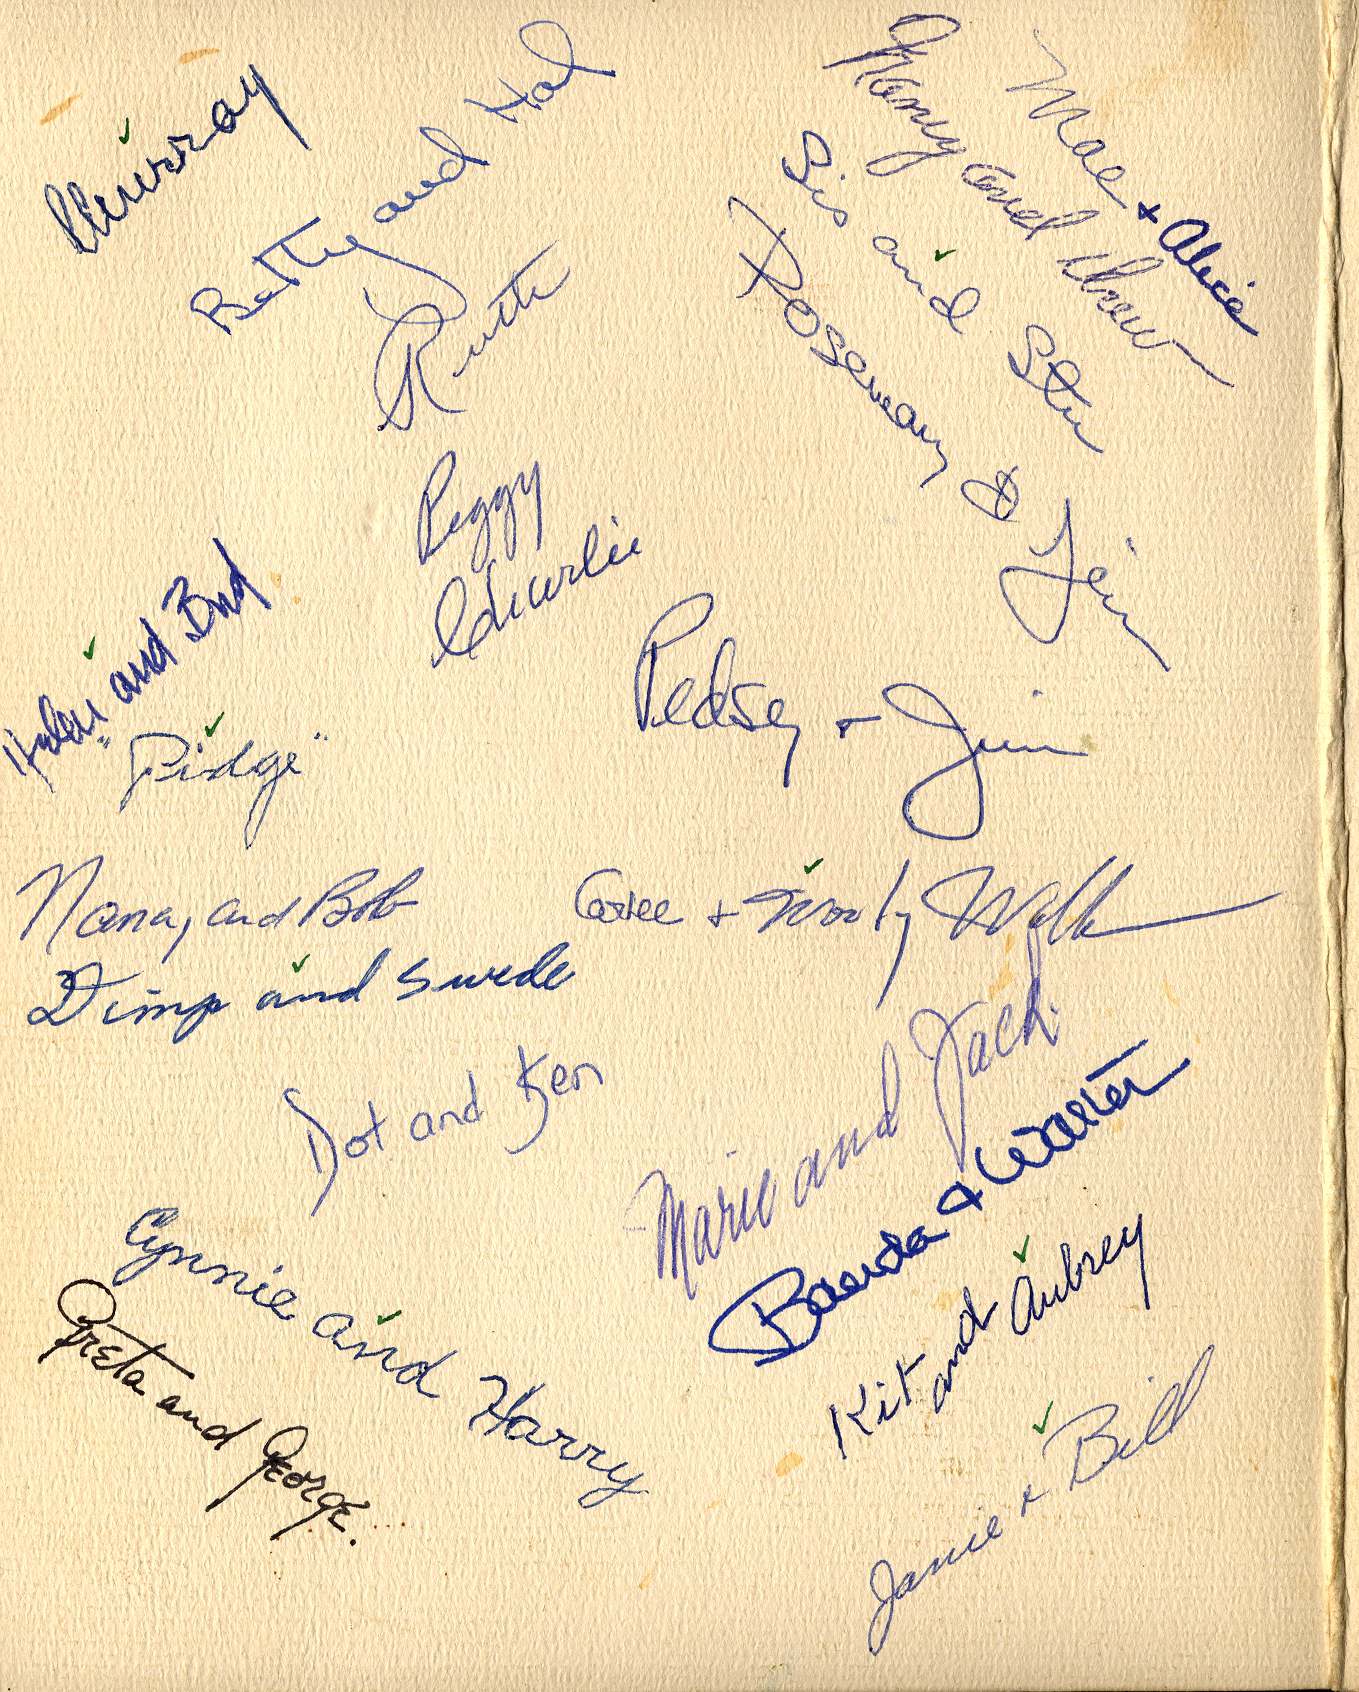 Murray
Betty and Hal
Ruth
Mae + Alice
Nancy and
Sis and Stu
Rosemary & Jim
Peggy
Charlie
Helen and Bud
"Pidge"
Pedsey + Jim
Nancy and Bob
+ Woody
Dimp and Swede
Dot and Ken
Marie and Jack
Brenda + Walter
Cynnie and Harry
Greta and George.
Kit and Aubrey
Janie + Bill